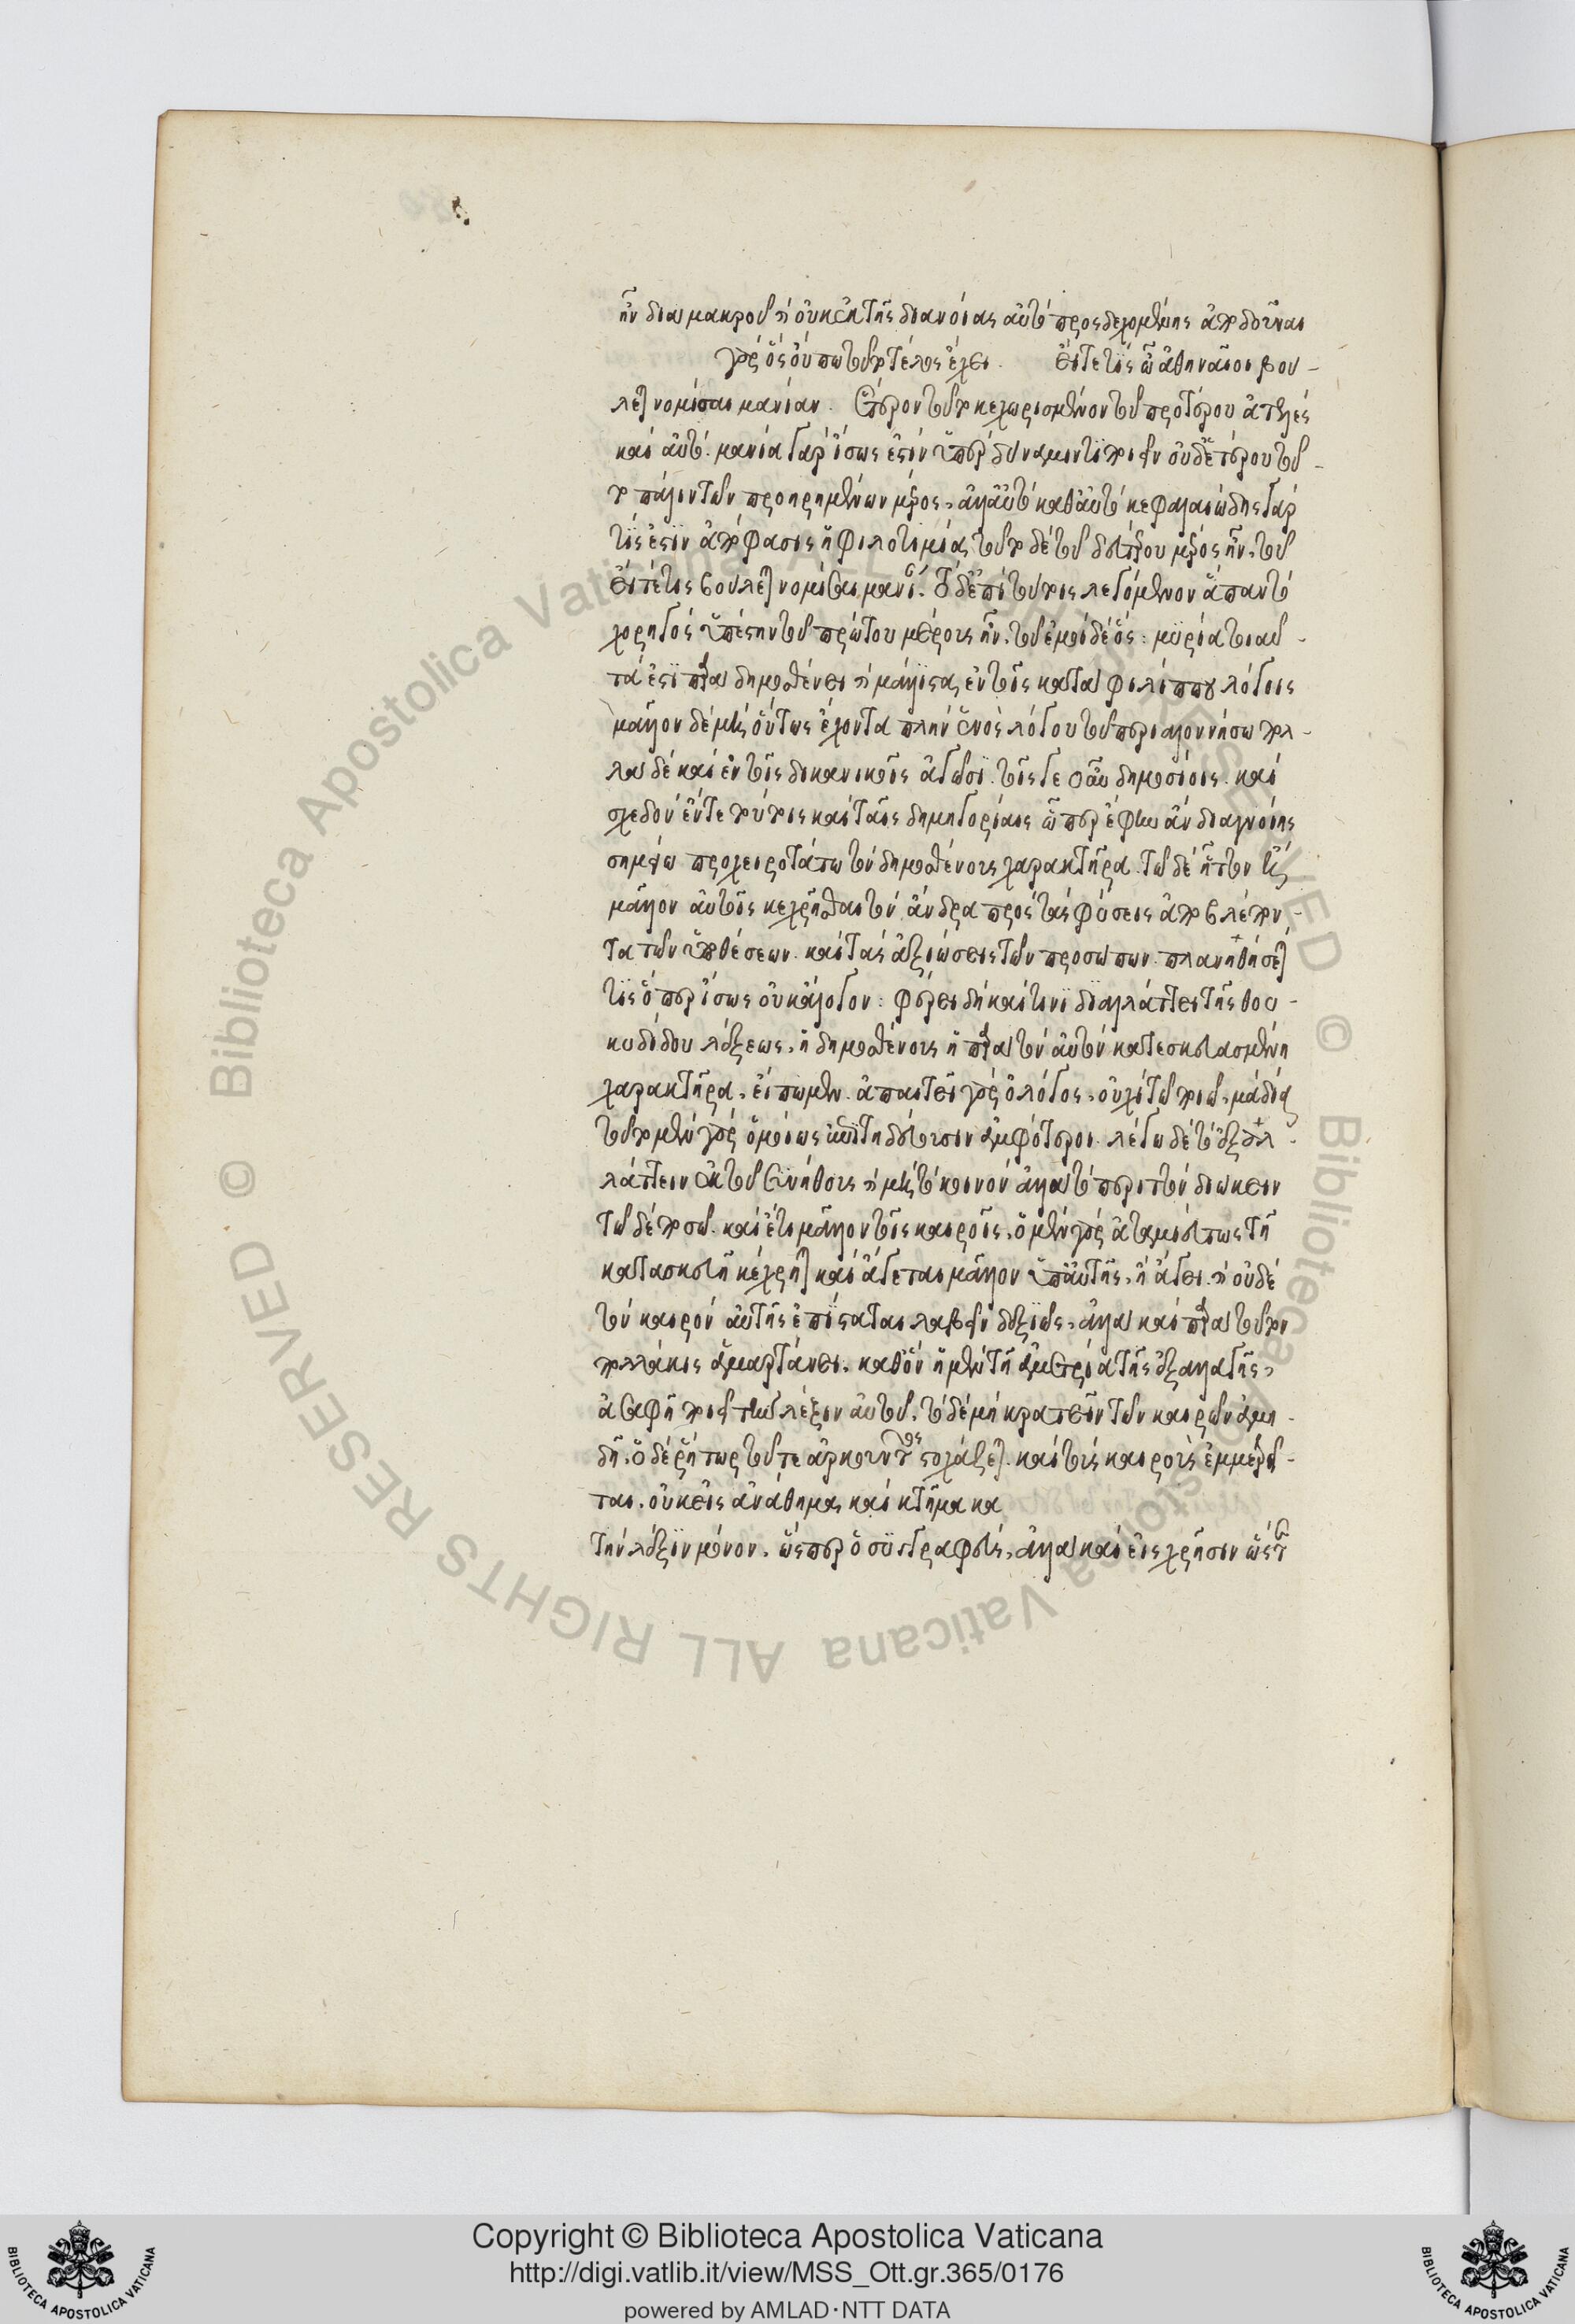 ἦν διὰ μακροῦ τι οὐκ ἐκ τῆς διανοίας αὐτὸ προσδεχομένης ἀποδοῦναι
γὰρ ὡς οὔπω τοῦτο τέλος ἔχει. εἴτέ τις ὦ ἀθηναῖοι βου-
λεται νομίσαι μανίαν. ἕτερον τοῦτο κεχωρισμένον τοῦ προτέρου ἀτελὲς
καὶ αὐτό. μανία γὰρ ἴσως ἐστὶν ὑπὲρ δύναμίν τι ποιεῖν οὐδετέρου τού-
το πάλιν τῶν προηρημένων μέρος, ἀλλ' αὐτὸ καθ' αὑτὸ κεφαλαιώδης γάρ
τίς ἐστιν ἀπόφασις ἢ φιλοτιμίας τοῦτο δὲ τοῦ δευτέρου μέρος ἦν, τοῦ
εἴτέ τις βούλεται νομίσαι μανί. τὸ δ' ἐπὶ τούτοις λεγόμενον ἅπαντ'
χορηγὸς ὑπέστην τοῦ πρώτου μέρους ἦν, τοῦ ἐγὼ δ' ὅς: μυρία τοιαῦ-
τά ἐστι παρὰ δημοσθένει τι μάλιστα ἐν τοῖς κατὰ φιλίππου λόγοις
μᾶλλον δὲ μὴ οὕτως ἔχοντα πλὴν ἑνὸς λόγου τοῦ περὶ ἁλοννήσω πολ-
λὰ δὲ καὶ ἐν τοῖς δικανικοῖς ἀγῶσι τοῖς γε οὖν δημοσίοις. καὶ
σχεδὸν ἔν τε τούτοις καὶ ταῖς δημηγορίαις ὥσπερ ἔφην ἂν διαγνοίης
σημείω προχειροτάτω τὸν δημοσθένους χαρακτῆρα. τῶ δὲ ἧττον ἢ
μᾶλλον αὐτοῖς κεχρῆσθαι τὸν ἄνδρα πρὸς τὰς φύσεις ἀποβλέπον-
τα τῶν ὑποθέσεων. καὶ τὰς ἀξιώσεις τῶν προσώπων. πλανηθήσεται
τις ὅπερ ἴσως οὐκ ἄλογον: φέρε δὴ καὶ τίνι διαλλάττει τῆς θου-
κυδίδου λέξεως, ἡ δημοσθένους ἡ παρὰ τὸν αὐτὸν κατεσκευασμένη
χαρακτῆρα, εἴπωμεν. ἀπαιτεῖ γὰρ ὁ λόγος, οὐχὶ τῶ ποιῶ, μὰ δία
τοῦτο μὲν γὰρ ὁμοίως ἐπιτηδεύουσιν ἀμφότεροι. λέγω δὲ τὸ ἐξαλ-
λάττειν ἐκ τοῦ συνήθους τι μὴ τὸ κοινὸν ἀλλὰ τὸ περιττὸν διώκειν
τῶ δὲ ποσῶ. καὶ ἔτι μᾶλλον τοῖς καιροῖς. ὁ μὲν γὰρ ἀταμιεύτως τῆ
κατασκευῆ κέχρηται καὶ ἄγεται μᾶλλον ὑπ' αὐτῆς, ἢ ἄγει. τι οὐδὲ
τὸν καιρὸν αὐτῆς ἐπίσταται λαβεῖν δεξιῶς, ἀλλὰ καὶ παρὰ τοῦτον
πολλάκις ἁμαρτάνει. καθ' ὃν ἡ μὲν τῆ ἀμετρία τῆς ἐξαλλαγῆς,
ἀσαφῆ ποιεῖ τὴν λέξιν αὐτοῦ. τὸ δὲ μὴ κρατεῖν τῶν καιρῶν ἀηη-
δῆ. ὁ δὲ ῥήτωρ τοῦ τε ἀρκοῦντος στοχάζεται. καὶ τοὺς καιροὺς ἐμμερεῖ-
ται. οὐκ εἰς ἀνάθημα καὶ κτῆμα κα
τὴν λέξιν μόνον, ὥσπερ ὁ συγγραφεύς, ἀλλὰ καὶ εἰς χρῆσιν ὥστε
Copyright © Biblioteca Apostolica Vaticana
http://digi.vatlib.it/view/MSS_Ott.gr.365/0176
powered by AMLAD·NTT DATA